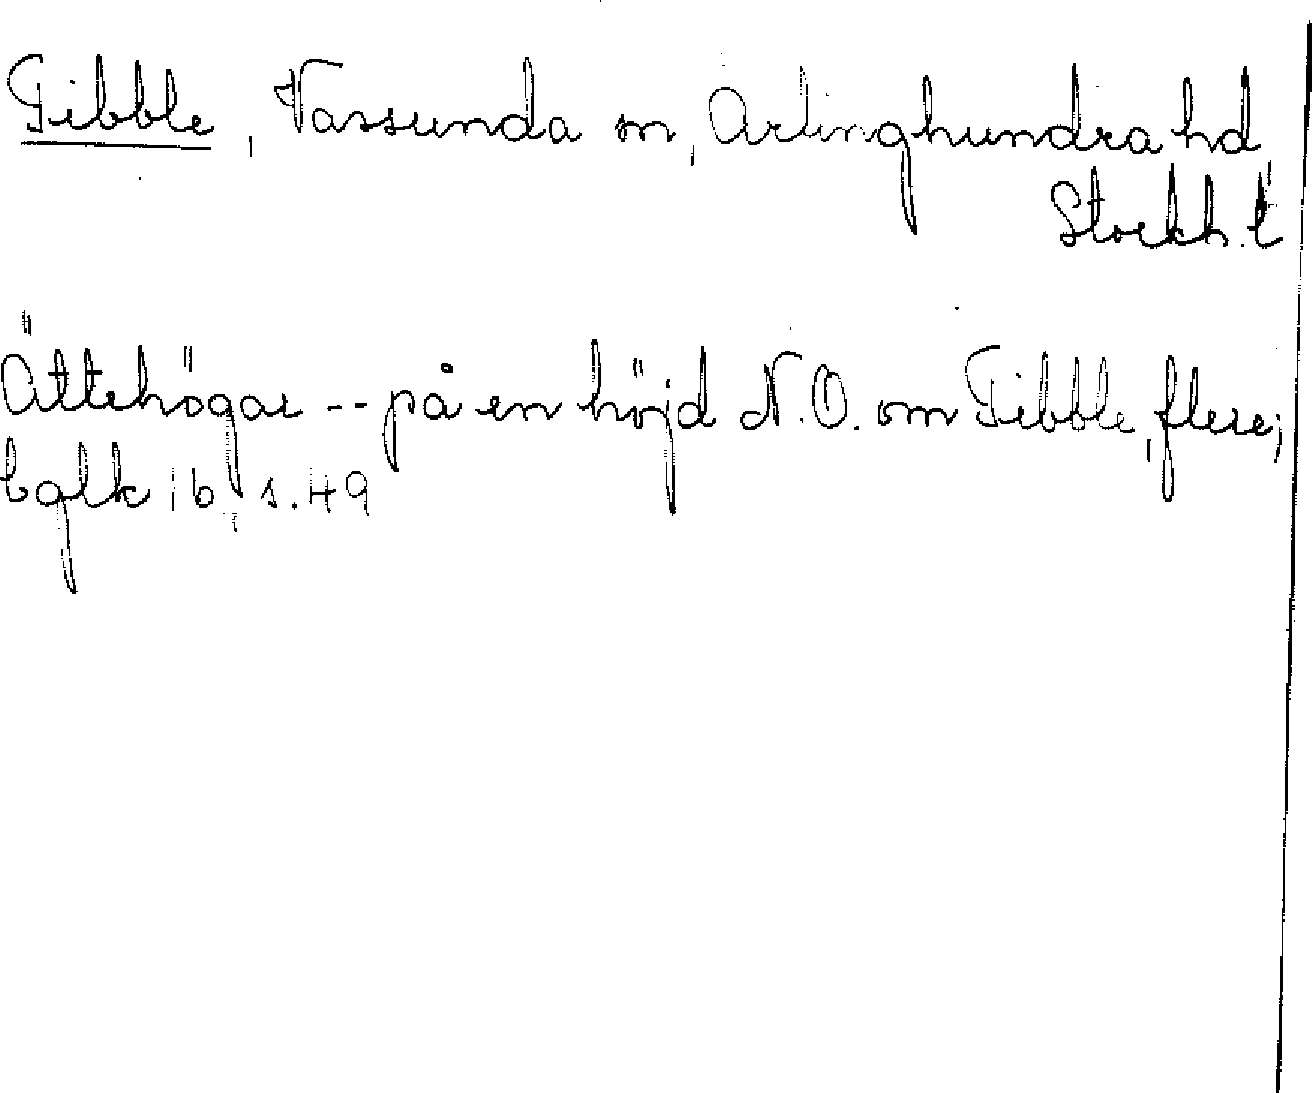 Tibble, Vassunda sn, Ärlinghundra hd,
Stockh. l
Ättehögar -- på en höjd N.O. om Tibble, flere;
bglk ib, s. 49